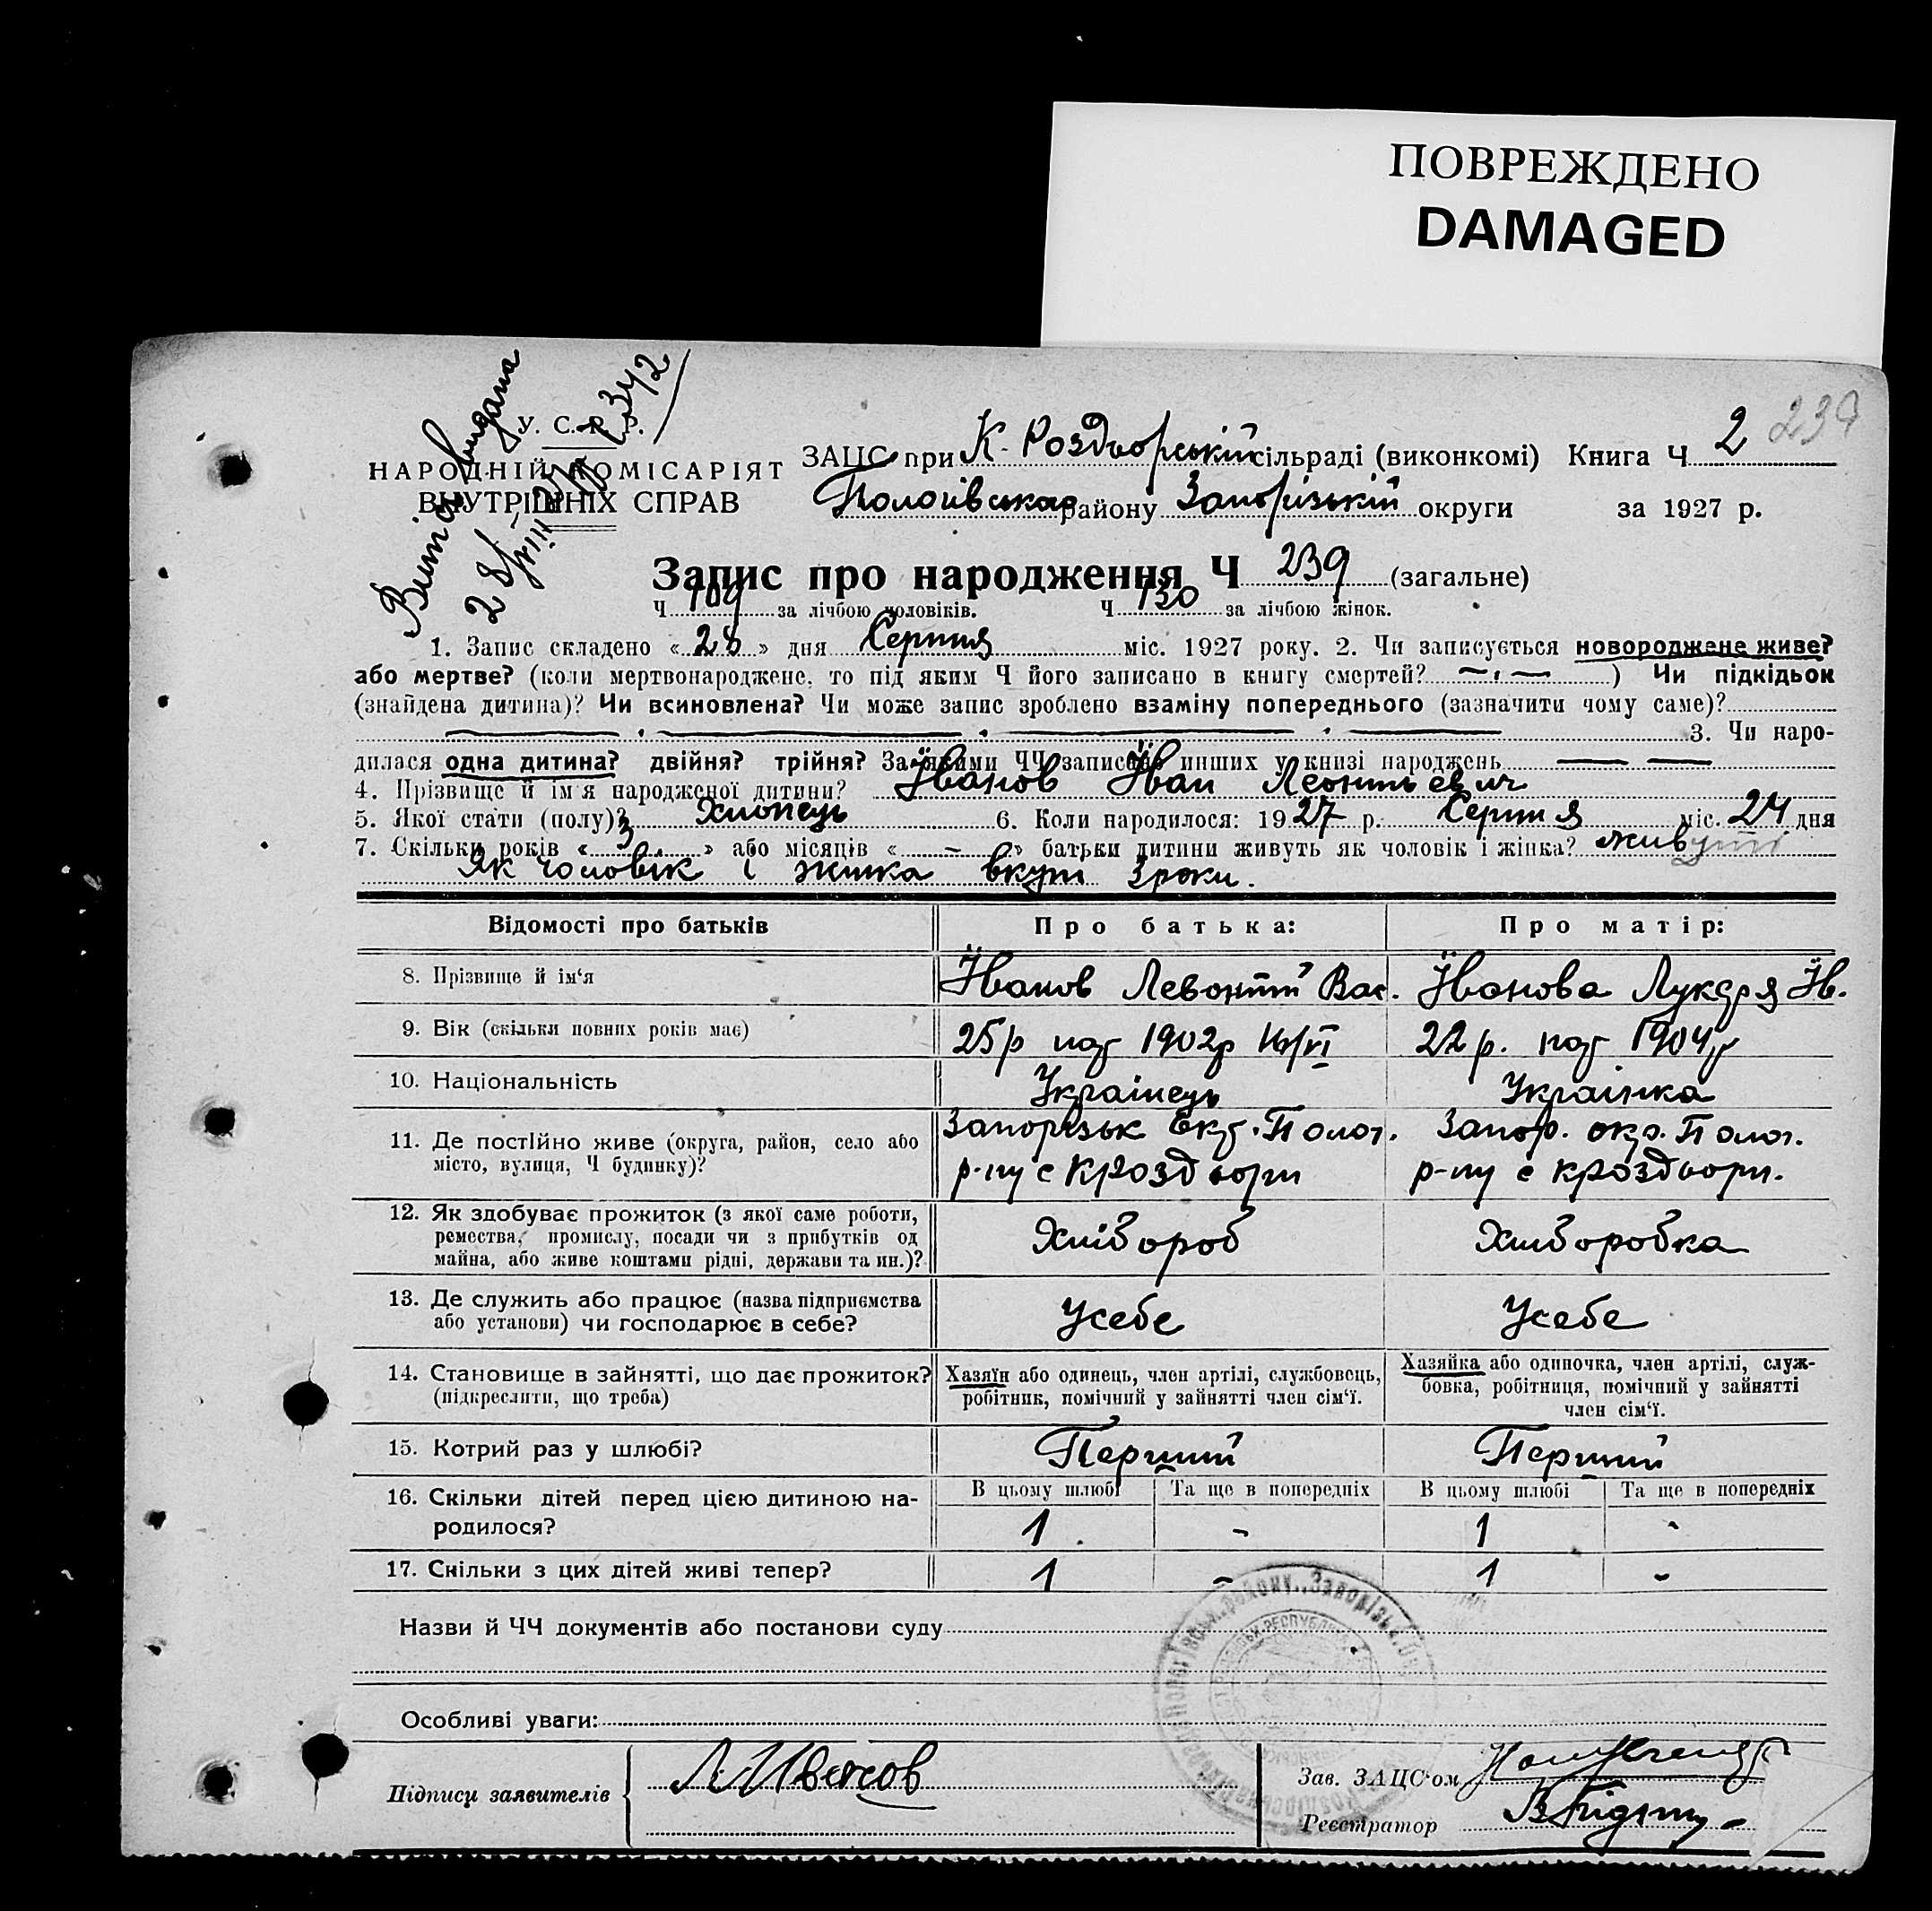 ПОВРЕЖДЕНО
DAMAGED
Витяг видана
28/VIII 27 р. 342
239
У. С. Р. Р.
НАРОДНІЙ КОМІСАРІЯТ
ВНУТРІШНІХ СПРАВ
ЗАЦС при К-Роздорській сільраді (виконкомі) Книга Ч 2
Пологівська району Запорізькій округи за 1927 р.
Запис про народження Ч 239 (загальне)
Ч 109 за лічбою чоловіків. Ч 130 за лічбою жінок.
1. Запис складено «28» дня Серпня міс. 1927 року. 2. Чи записується новороджене живе?
або мертве? (коли мертвонароджене, то під яким Ч його записано в книгу смертей? — · — ) Чи підкідьок
(знайдена дитина)? Чи всиновлена? Чи може запис зроблено взаміну попереднього (зазначити чому саме)?
3. Чи наро-
дилася одна дитина? двійня? трійня? За якими ЧЧ записано инших у книзі народжень — —
4. Прізвище й ім'я народженої дитини? Іванов Іван Леонтьевич
5. Якої стати (полу)? Хлопець 6. Коли народилося: 1927 р. Серпня міс. 24 дня
7. Скільки років «3» або місяців «-» батьки дитини живуть як чоловік і жінка? живуть
Як чоловік і жинка вкупі 3 роки.
Відомості про батьків Про батька: Про матір:
8. Прізвище й ім'я Іванов Левонтій Вас. Іванова Лукеря Ів.
9. Вік (скільки повних років має) 25 р 1902 р /VI 22 р. 1904 р
10. Національність Українець Українка
11. Де постійно живе (округа, район, село або Запорізьк Окр. Полог. Запор. окр. Полог.
місто, вулиця, Ч будинку)? р-ну с КРоздори р-ну с Кроздори.
12. Як здобуває прожиток (з якої саме роботи,
ремества, промислу, посади чи з прибутків од Хлібороб Хліборобка
майна, або живе коштами рідні, держави та ин.)?
13. Де служить або працює (назва підприємства
або установи) чи господарює в себе? Усебе Усебе
14. Становище в зайнятті, що дає прожиток? Хазяїн або одинець, член артілі, службовець, Хазяйка або одиночка, член артілі, служ-
(підкреслити, що треба) робітник, помічний у зайнятті член сім'ї. бовка, робітниця, помічний у зайнятті
член сім'ї.
15. Котрий раз у шлюбі? Перший Перший
16. Скільки дітей перед цією дитиною на- В цьому шлюбі Та ще в попередніх В цьому шлюбі Та ще в попередніх
родилося? 1. - 1 -
17. Скільки з цих дітей живі тепер? 1 - 1 -
Назви й ЧЧ документів або постанови суду
Особливі уваги:
Підписи заявителів Л Иванов
Зав. ЗАЦС'ом
Реєстратор